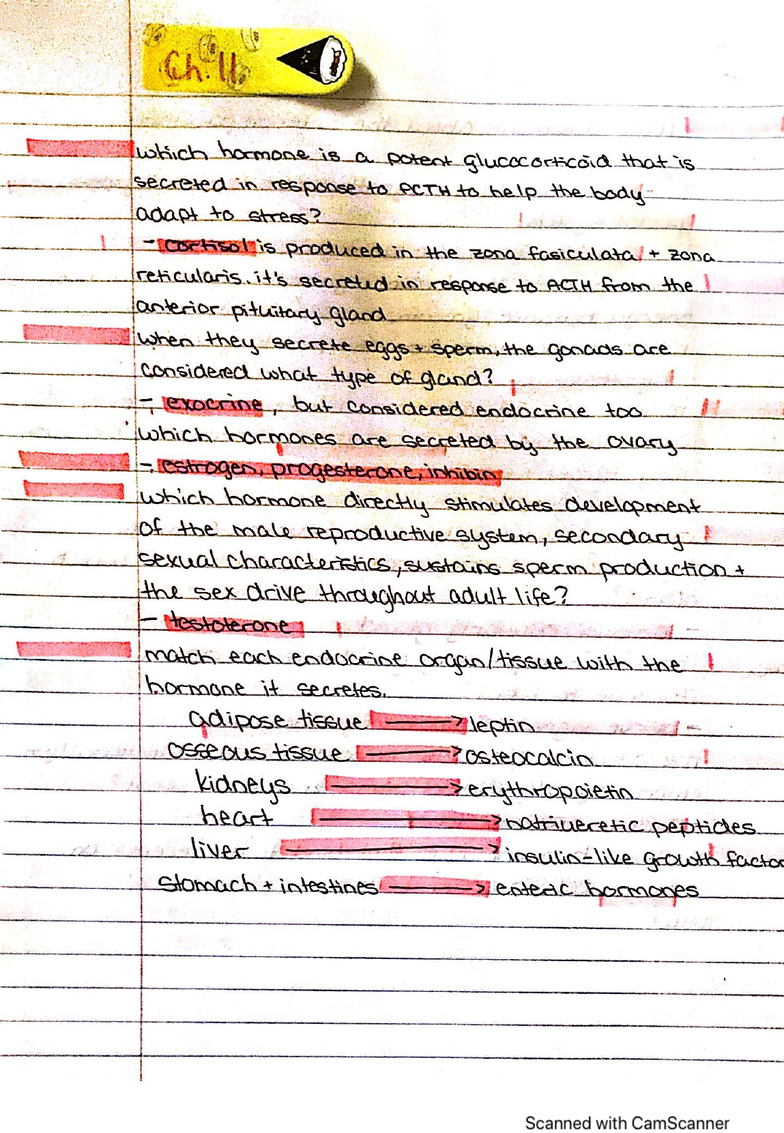 Ch. 11
which hormone is a potent glucocorticoid that is
secreted in response to ACTH to help the body
adapt to stress?
- cortisol is produced in the zona fasiculata + zona
reticularis. it's secreted in response to ACTH from the
anterior pituitary gland
when they secrete eggs + sperm, the gonads are
considered what type of gland?
- exocrine, but considered endocrine too
which hormones are secreted by the ovary
- estrogen, progesterone, inhibin
which hormone directly stimulates development
of the male reproductive system, secondary
sexual characteristics, sustains sperm production +
the sex drive throughout adult life?
- testoterone
match each endocrine organ/tissue with the
hormone it secretes.
adipose tissue → leptin
osseous tissue → osteocalcin
kidneys → erythropoietin
heart → natriueretic peptides
liver → insulin-like growth factor
stomach + intestines → enteric hormones
Scanned with CamScanner